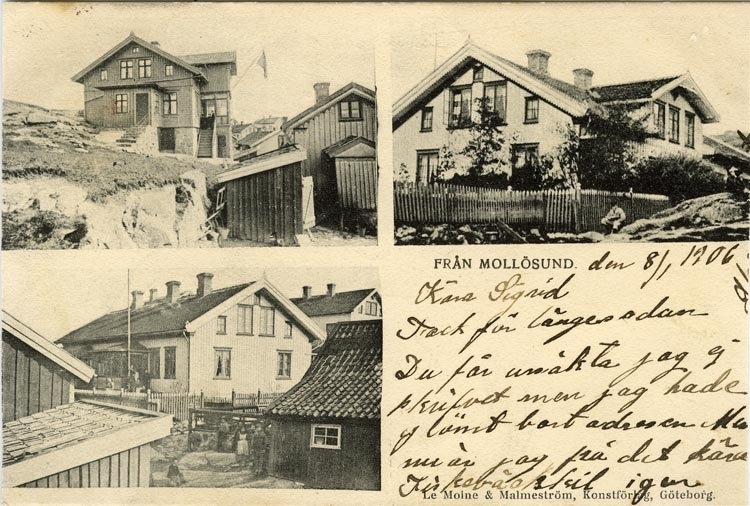 FRÅN MOLLÖSUND. den 8/1 1906
Kära Sigrid
Tack för långesedan
Du får ursäkta jag ej
skrifvet men jag hade
glömt bort adresen
nu är jag på det kära
Fiskebäckskil igen
Le Moine & Malmeström, Konstförlag, Göteborg.